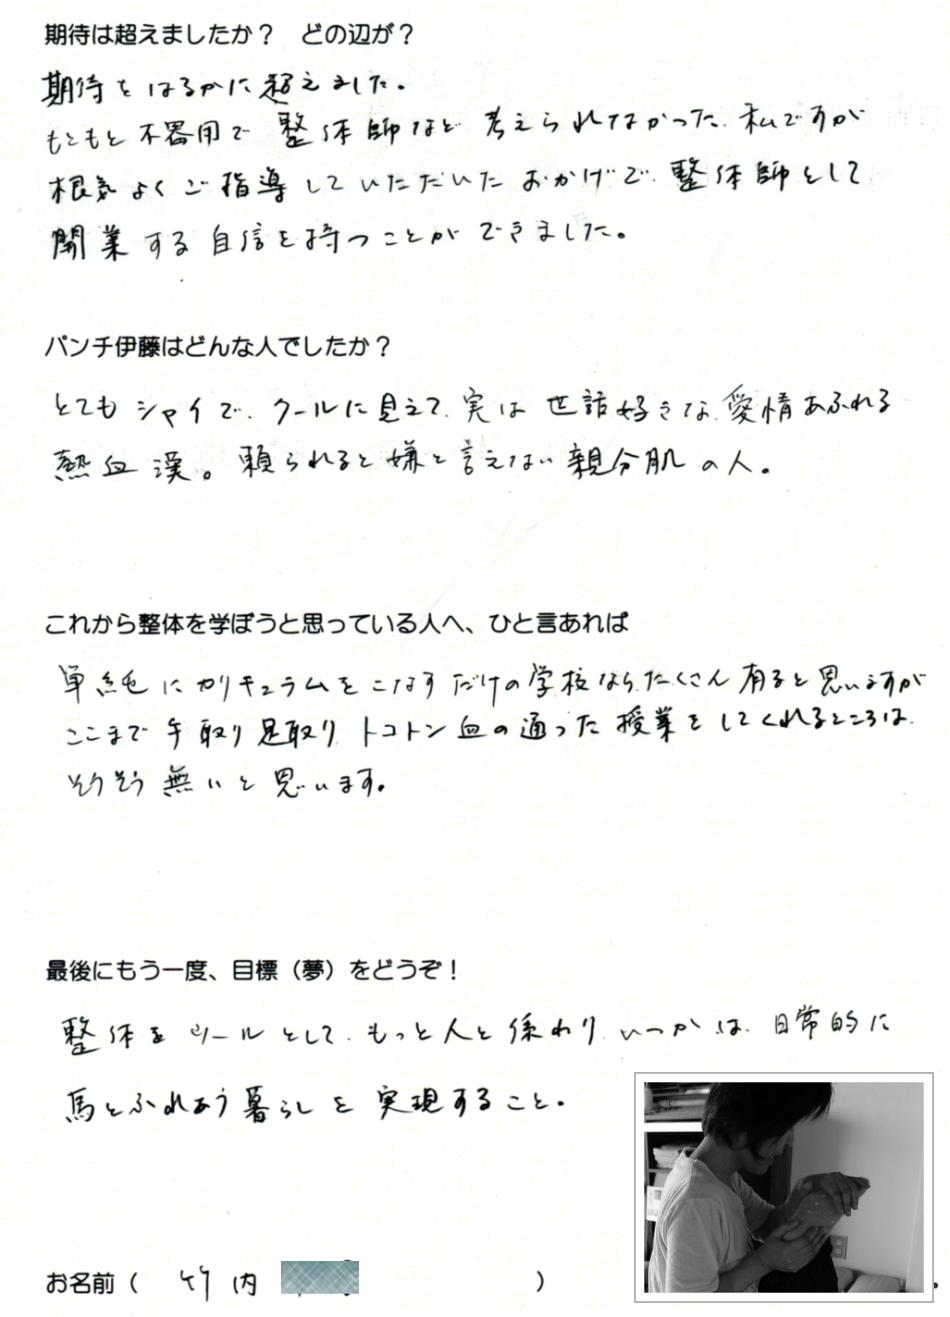 期待は超えましたか？　どの辺が？
期待をはるかに超えました。
もともと不器用で 整体師など 考えられなかった、私ですが
根気よくご指導していただいたおかげで、整体師として
開業する自信を持つことができました。
パンチ伊藤はどんな人でしたか？
とてもシャイで、クールに見えて、実は世話好きな、愛情あふれる
熱血漢。頼られると嫌と言えない親分肌の人。
これから整体を学ぼうと思っている人へ、ひと言あれば
単純にカリキュラムをこなすだけの学校なら、たくさん有ると思いますが
ここまで手取り足取り、トコトン血の通った授業をしてくれるところは、
そうそう無いと思います。
最後にもう一度、目標（夢）をどうぞ！
整体をツールとして、もっと人と係わり、いつかは、日常的に
馬とふれあう暮らしを実現すること。
お名前（　竹内　）